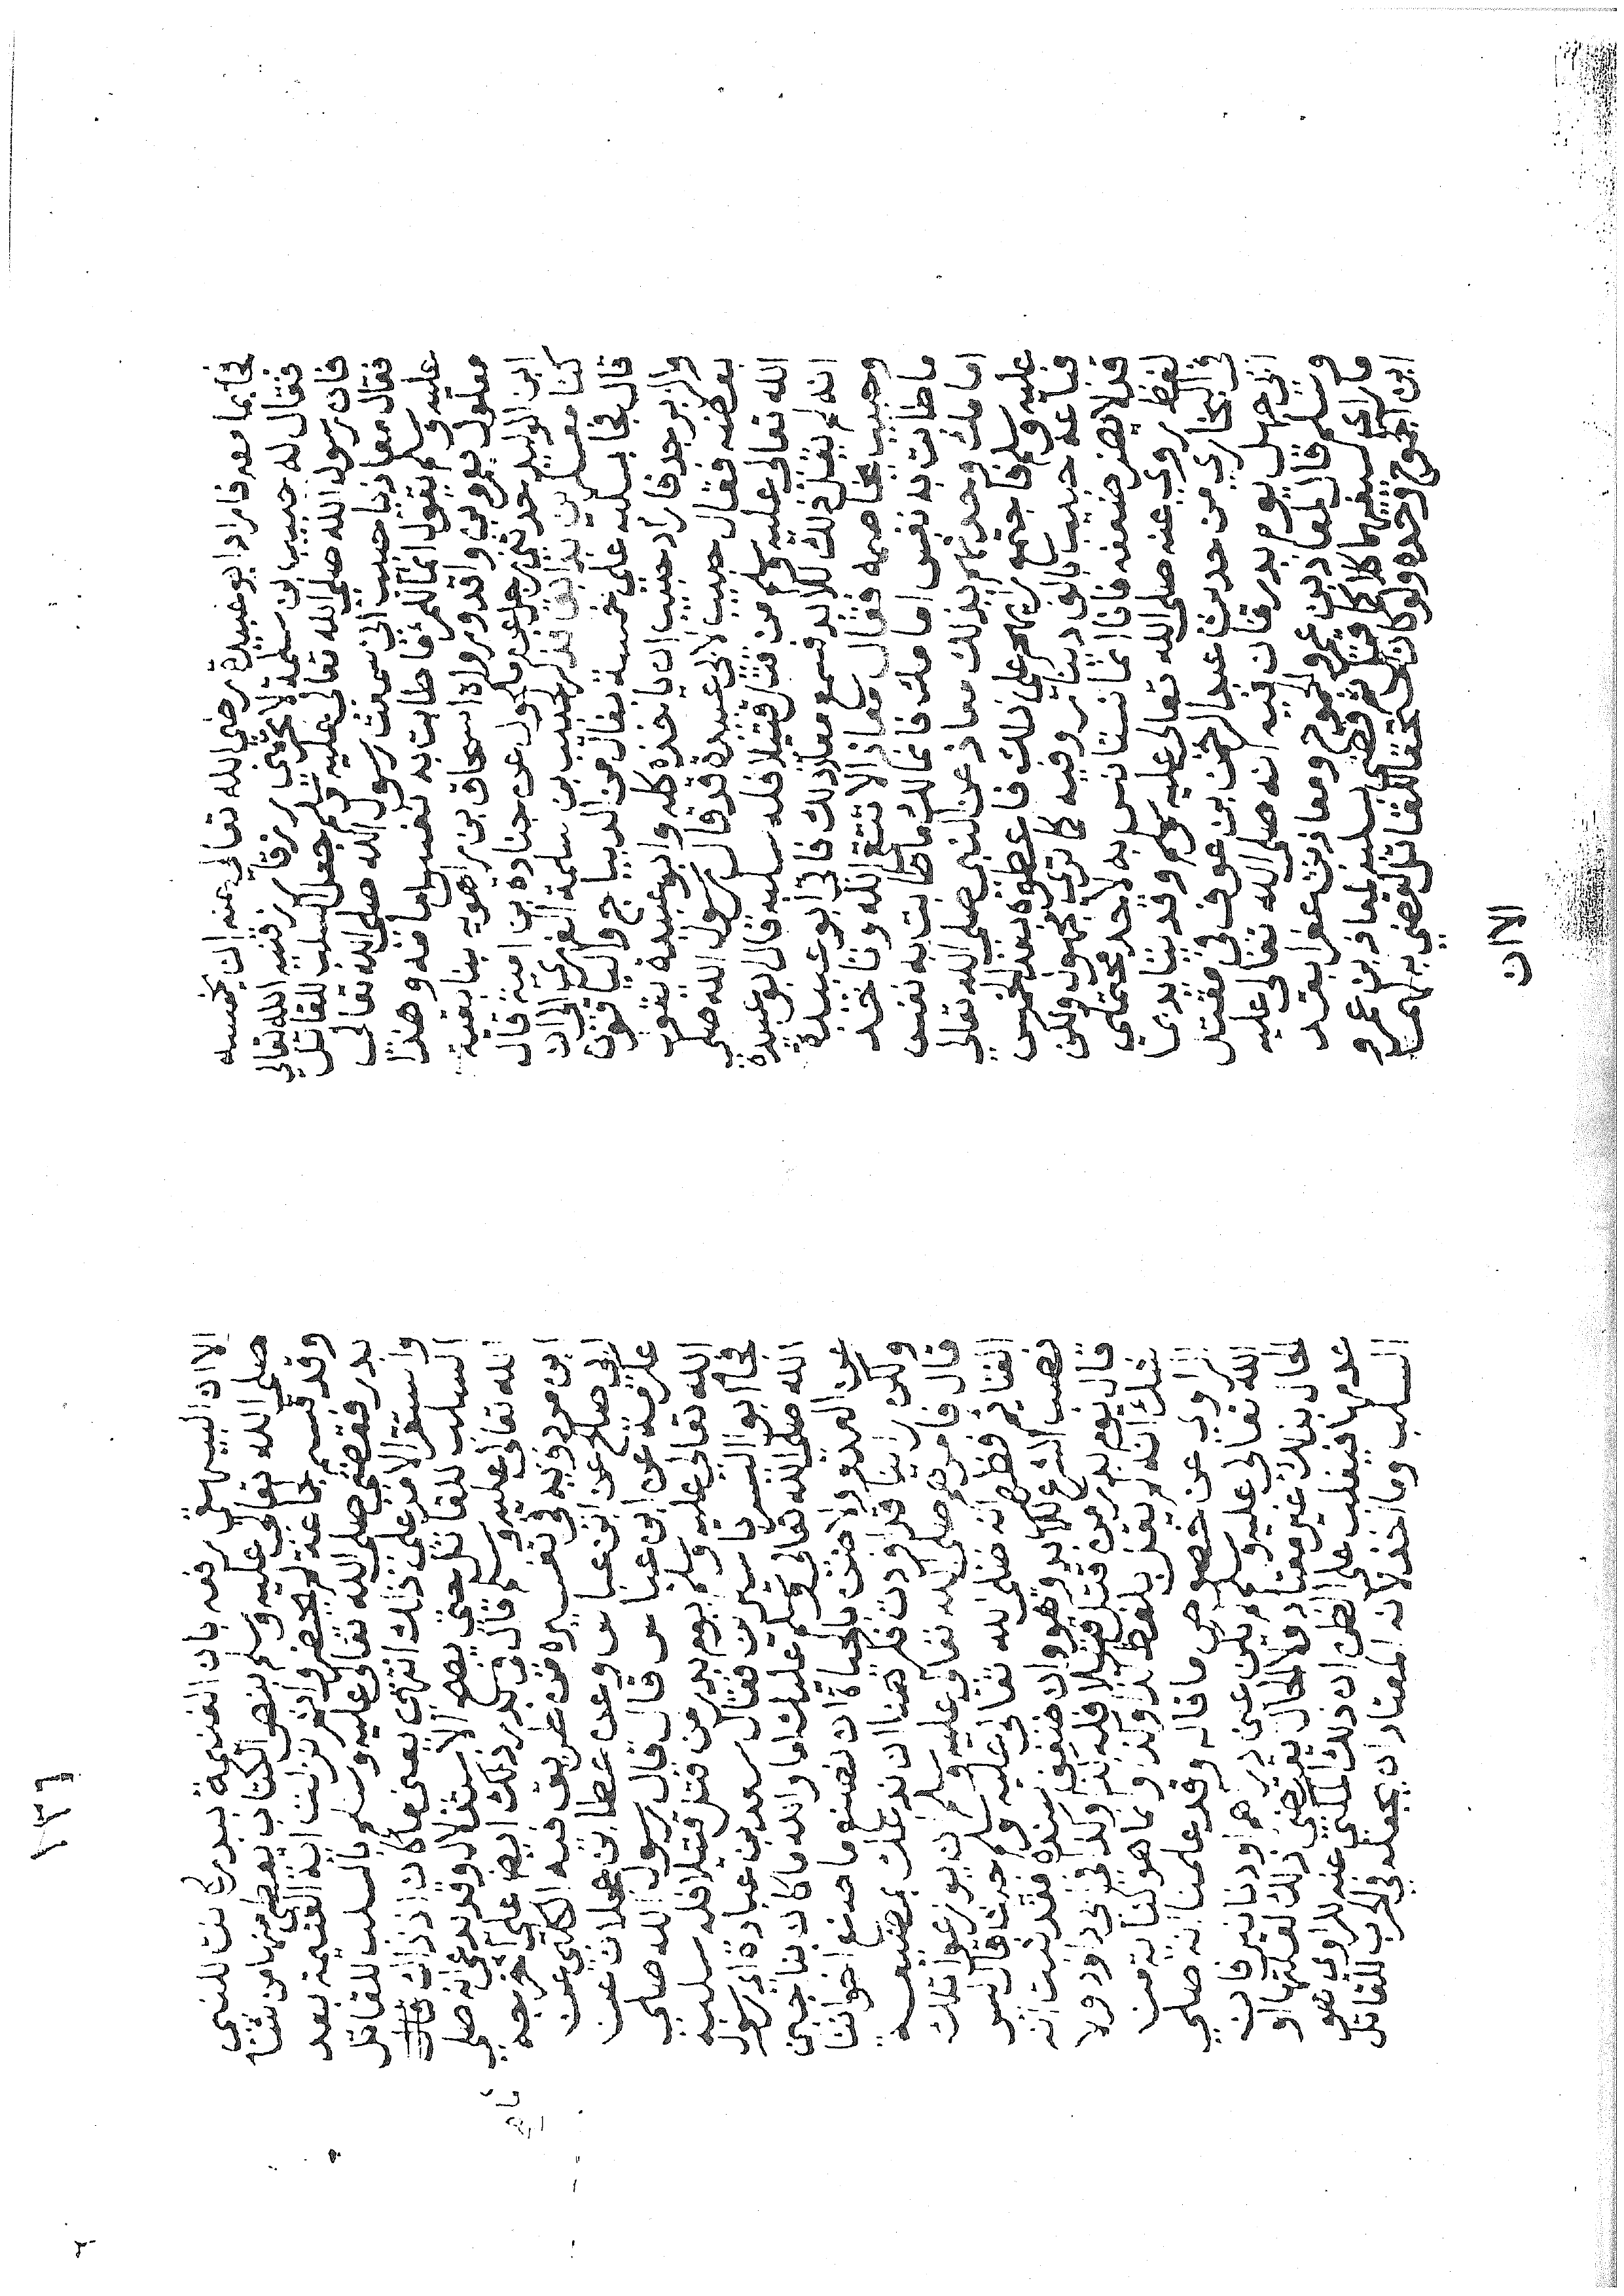 فجا بما معه فاراد ابو عبيدة رضي الله تعالى عنه ان يخمسه
فقال له حبيب بن سلمة لا تحرمني رزقا رزقنيه الله تعالى
فان رسول الله صلى الله تعالى عليه وسلم جعل السلب للقاتل
فقال معاذ يا حبيب اني سمعت رسول الله صلى الله تعالى
عليه وسلم يقول انما للمرء ما طابت به نفس امامه وهذا
معلول بعمرو بن واقد ورواه اسحاق بن راهويه بنا بقية
ابن الوليد حدثني رجل عن مكحول عن جنادة بن امية قال
كنا معسكرين بدابق فذكر لحبيب بن سلمة الفهري الى ان
قال فجا بسلبه على خمسة بغال من الديباج والياقوت
والزبرجد فاراد حبيب ان ياخذه كله وابو عبيدة يقول
بعضه فقال حبيب لابي عبيدة قد قال رسول الله صلى
الله تعالى عليه وسلم من قتل قتيلا فله سلبه قال ابو عبيدة
انه لم يقل ذلك للابد وسمع معاذ ذلك فاتى ابو عبيدة
وحبيب يخاصمه فقال معاذ الا تتقي الله وتاخذ
ما طابت به نفس امامك فانما لك ما طابت به نفس
امامك وحدثهم بذلك معاذ عن النبي صلى الله تعالى
عليه وسلم فاجتمع رايهم على ذلك فاعطوه بعد الخمس
فباعه حبيب بالف دينار وفيه كما ترى مجهول ولكن
قد لا يضر ضعفه فانا انما نستانس به لاحد محتملي
لفظ روي عنه صلى الله تعالى عليه وسلم وقد يتايد بما
في البخاري من حديث عبد الرحمن بن عوف في مقتل
ابي جهل يوم بدر فان فيه انه صلى الله تعالى عليه
وسلم قال لمعاذ بن عمرو بن الجموح ومعاذ بن عفرا بعد
ما راى سيفيهما كلاكما قتله ثم قضى بسلبه لمعاذ بن عمرو
ابن الجموح وحده ولو كان مستحقا للقاتل لقضى به لهما
الا ان
١٣٦
الا ان البيهقي رفعه بان الغنيمة ببدر كانت للنبي
صلى الله تعالى عليه وسلم بنص الكتاب يعطي منها من يشا
وقد قسم لجماعة لم يحضروا ثم نزلت اية الغنيمة بعد
بدر فقضى صلى الله تعالى عليه وسلم بالسلب للقاتل
واستقر الامر على ذلك انتهى يعني ما كان اذ ذاك قال
السلب للقاتل حتى يصح الاستدلال وقد يدعى انه صلى
الله تعالى عليه وسلم قال في بدر ذلك ايضا على ما اخرجه
ابن مردويه في تفسيره من طريق فيه الكلبي عن
ابي صالح عن ابن عباس وعن عطا بن عجلان عن
عكرمة عن ابن عباس قال قال رسول الله صلى
الله تعالى عليه وسلم يوم بدر من قتل قتيلا فله سلبه
فجا ابو اليسر باسيرين فقال سعد بن عبادة اي رسول
الله صلى الله تعالى عليه وسلم اما والله ما كان بنا جبن
عن العدو ولا ضن بالحياة ان نصنع ما صنع اخواننا
ولكن راينا قد افردت فكرهنا ان ندعك بمضيعة
قال فامرهم صلى الله تعالى عليه وسلم ان يوزعوا تلك
الغنايم فظهر انه صلى الله تعالى عليه وسلم حيث قال ليس
نصب الشرع للابد وهو وان ضعف سنده فقد ثبت انه
قال يوم بدر من قتل قتيلا فله كذا وكذا في ابي داود ولا
شك انه لم يقل بلفظ كذا وكذا وانما هو كناية من
الراوي عن خصوص ما قاله وقد علمنا انه صلى
الله تعالى عليه وسلم لم يكن عنى دراهم او دنانير فان
الحال بذلك غير معتاد ولا الحال يقتضي ذلك لقلتها او
عدمها فيغلب على الظن ان ذلك المكنى عنه للراوي هو
السلب وما اخذ لانه المعتاد ان يجعل في الحرب للقاتل